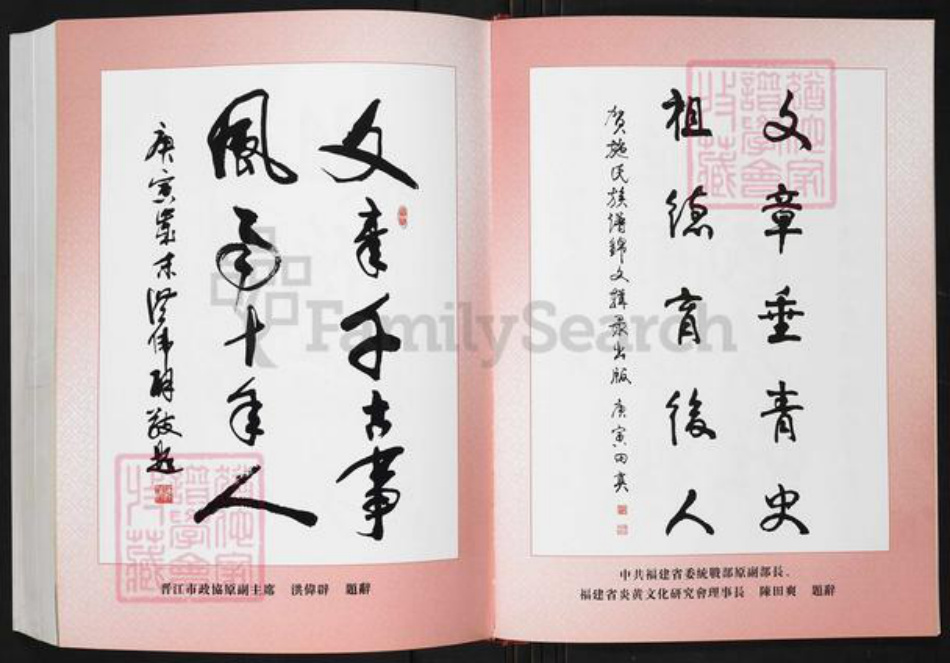 文章千古事
風雨十年人
庚寅歲末洪伟群敬題
晉江市政協原副主席 洪偉群 題辭
猶他家
譜學會
收藏
文章垂青史
祖德育後人
贺施氏族譜錦文輯录出版 庚寅田爽
中共福建省委統戰部原副部長、
福建省炎黄文化研究會理事長 陳田爽 題辭
猶他家
譜學會
收藏
FamilySearch